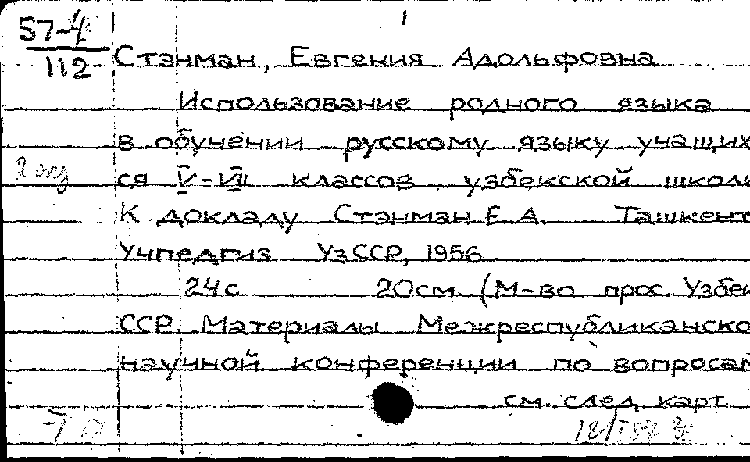 57-4
1
112
Стэнман, Евгения Адольфовна
Использование родного языка
в обучении русскому языку учащих
ся V-VII классов узбекской школы
К докладу Стэнман Е.А. Ташкент
Учпедгиз УзССР, 1956
24с 20см (М-во прос. Узбек
ССР. Материалы Межреспубликанско
научной конференции по вопросам
см. след. карт